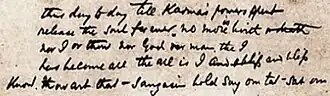 this day to day till Karma's powers spent
release the soul forever. no more birth
nor I nor thou nor God nor man the I
has become all the all is I and bliss
Know thou art that – Sanyasin bold say om tat – sat om